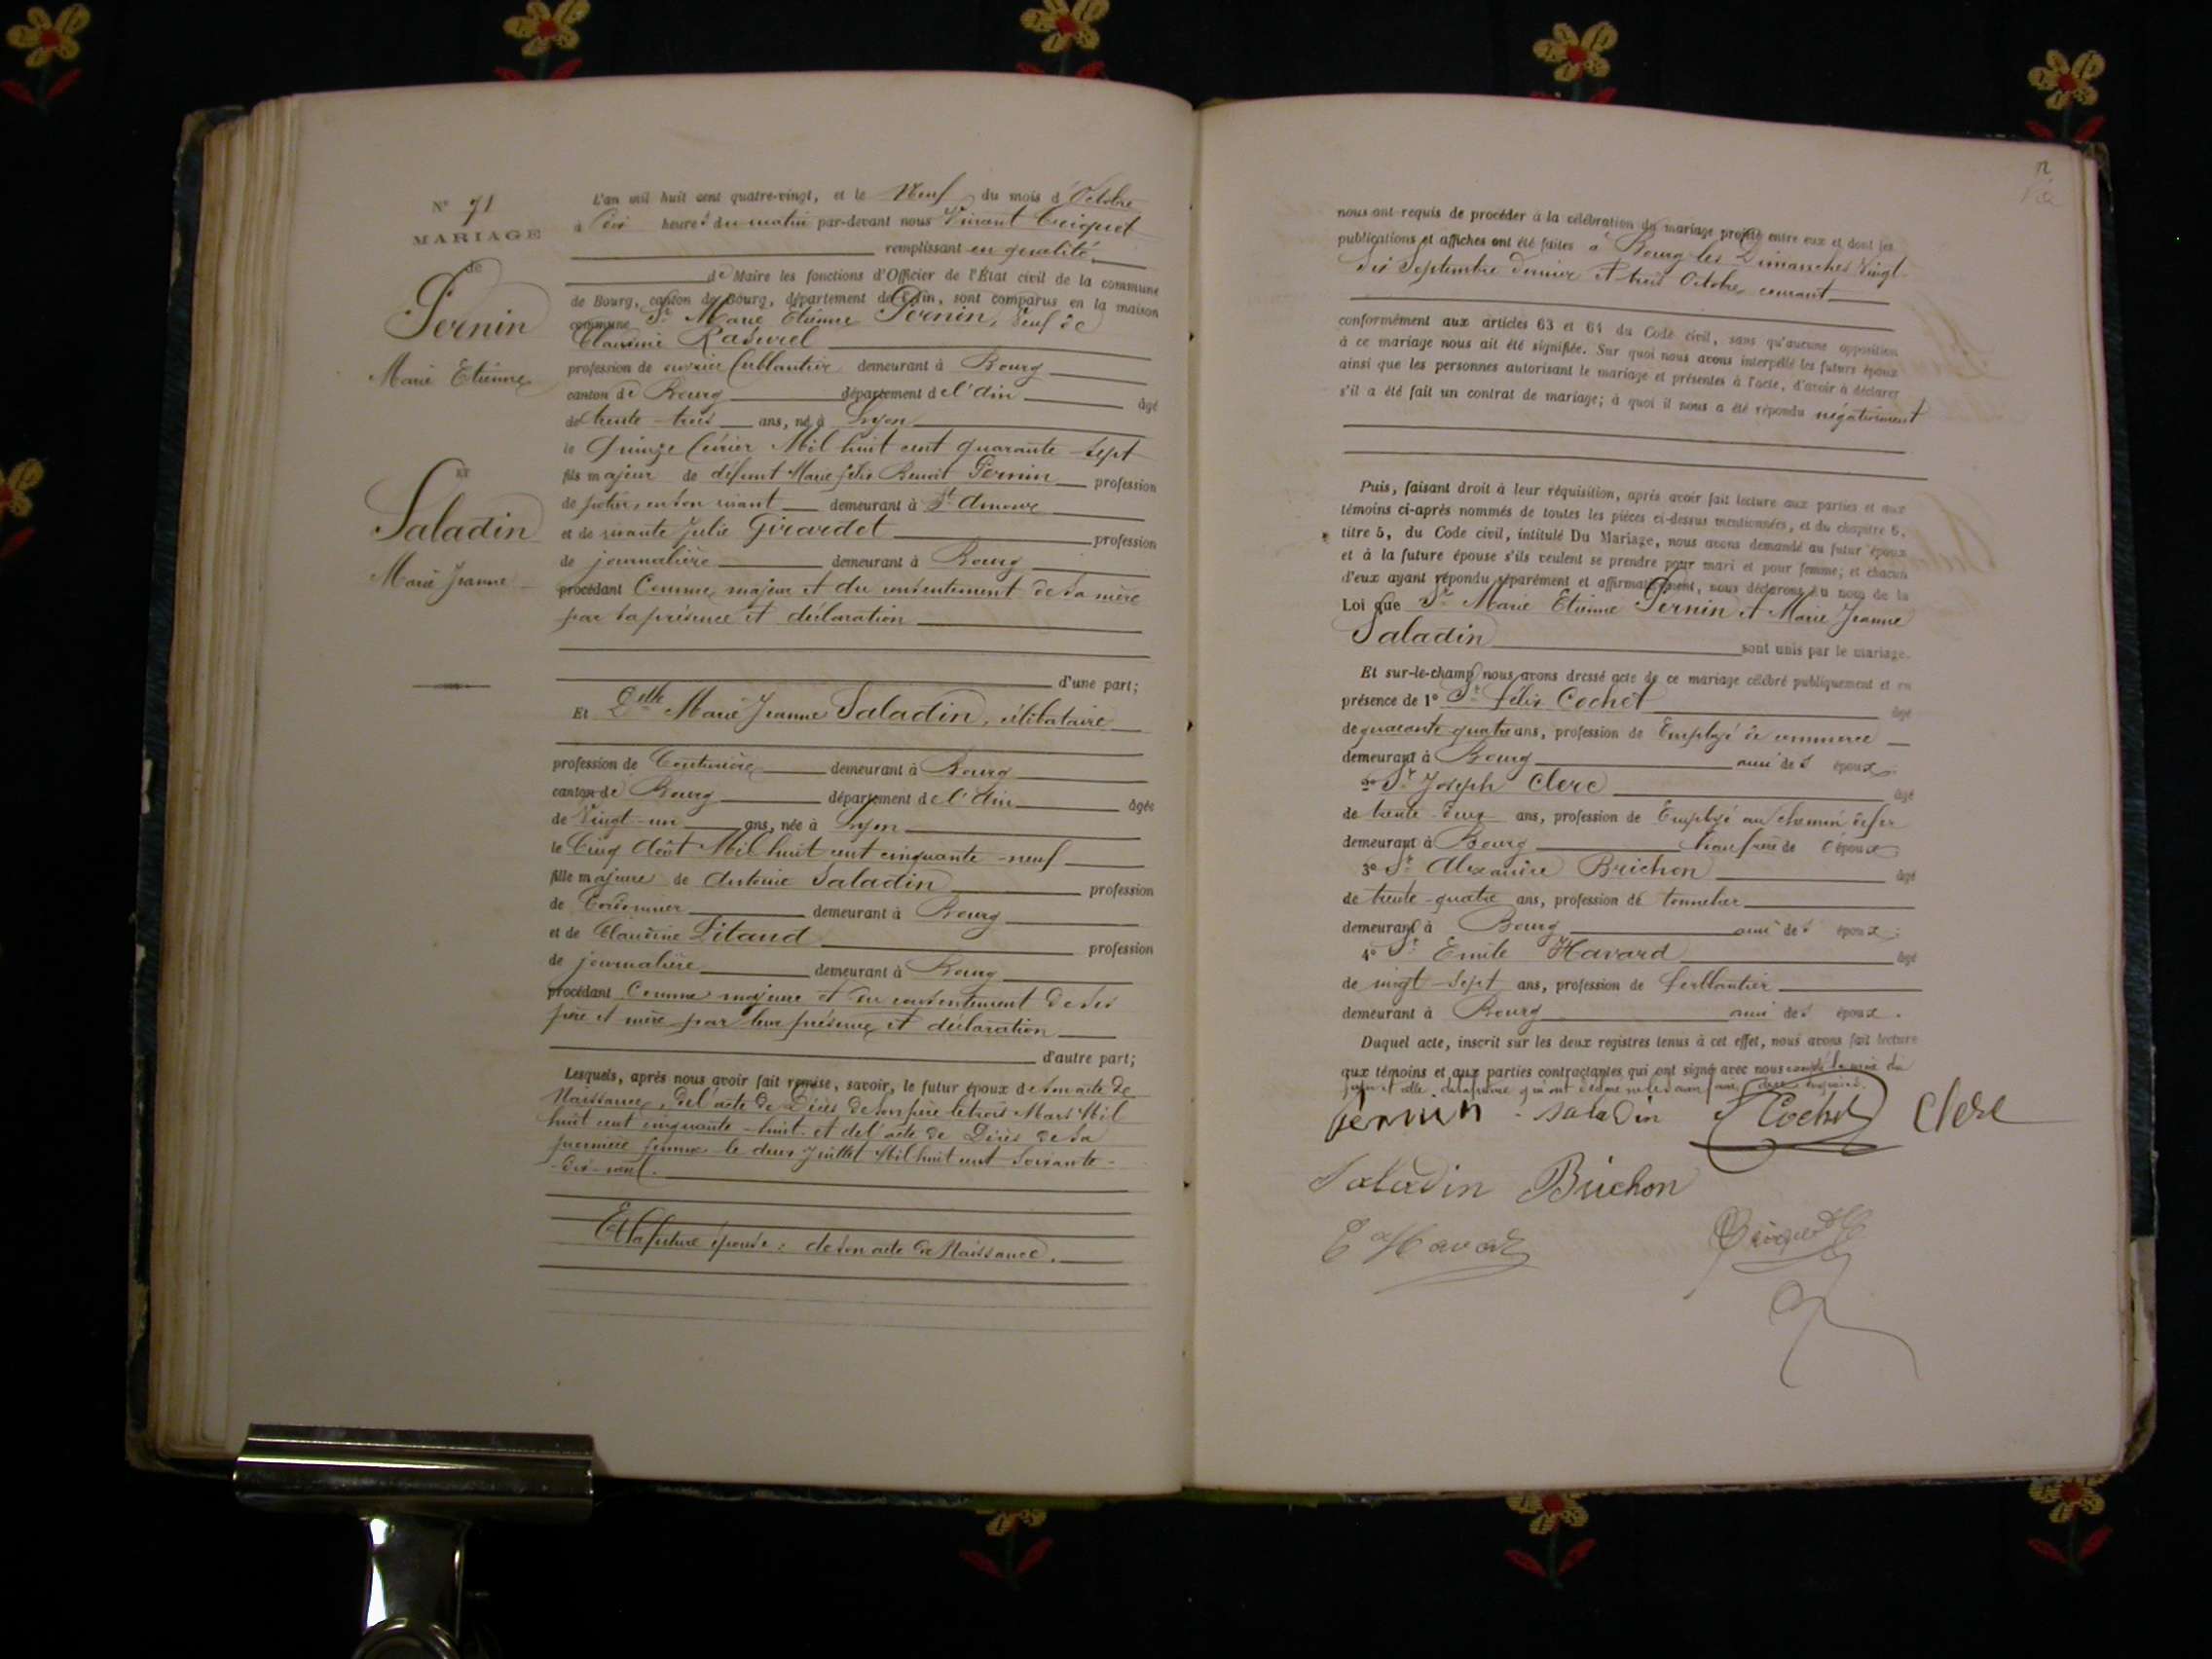 N° 71
MARIAGE
de
Pernin
Marie Etienne
ET
Saladin
Marie Jeanne
L'an mil huit cent quatre-vingt, et le Neuf du mois d'Octobre
à Dix heures du matin par-devant nous Vivant
remplissant en qualité
de Maire les fonctions d'Officier de l'État civil de la commune
de Bourg, canton de Bourg, département de l'Ain, sont comparus en la maison
commune Sr Marie Etienne Pernin, Veuf de
Claudine Rasurel
profession de ouvrier ferblantier demeurant à Bourg
canton de Bourg département de l'Ain âgé
de trente-trois ans, né à Lyon
le Quinze février Mil huit cent quarante-sept
fils majeur de défunt Marie Félix Benoit Pernin profession
de potier, en son vivant demeurant à St Amour
et de vivante Julie Girardet profession
de journalière demeurant à Bourg
procédant Comme majeur et du consentement de sa mère
par sa présence et déclaration
d'une part;
Et Delle Marie Jeanne Saladin, célibataire
profession de Couturière demeurant à Bourg
canton de Bourg département de l'Ain âgée
de Vingt-un ans, née à Lyon
le Cinq Août Mil huit cent cinquante-neuf
fille majeure de Antoine Saladin profession
de Cordonnier demeurant à Bourg
et de Claudine Litaud profession
de journalière demeurant à Bourg
procédant Comme majeure et du consentement de ses
père et mère par leur présence et déclaration
d'autre part;
Lesquels, après nous avoir fait remise, savoir, le futur époux de son acte de
Naissance, de l'acte de Décès de son père le trois Mars Mil
huit cent cinquante-huit et de l'acte de Décès de sa
première femme le deux Juillet Mil huit cent soixante-
-dix-neuf.
Et la future épouse: de son acte de Naissance.
nous ont requis de procéder à la célébration du mariage projeté entre eux et dont les
publications et affiches ont été faites à Bourg les Dimanches Vingt-
six Septembre dernier et trois Octobre courant
conformément aux articles 63 et 64 du Code civil, sans qu'aucune opposition
à ce mariage nous ait été signifiée. Sur quoi nous avons interpellé les futurs époux
ainsi que les personnes autorisant le mariage et présentes à l'acte, d'avoir à déclarer
s'il a été fait un contrat de mariage; à quoi il nous a été répondu négativement
Puis, faisant droit à leur réquisition, après avoir fait lecture aux parties et aux
témoins ci-après nommés de toutes les pièces ci-dessus mentionnées, et du chapitre 6,
titre 5, du Code civil, intitulé Du Mariage, nous avons demandé au futur époux
et à la future épouse s'ils veulent se prendre pour mari et pour femme; et chacun
d'eux ayant répondu séparément et affirmativement, nous déclarons au nom de la
Loi que Sr Marie Etienne Pernin et Marie Jeanne
Saladin sont unis par le mariage.
Et sur-le-champ nous avons dressé acte de ce mariage célébré publiquement et en
présence de 1° Sr Félix Cochet âgé
de quarante quatre ans, profession de Employé de commerce
demeurant à Bourg ami des époux;
2° Sr Joseph Clerc âgé
de trente-deux ans, profession de Employé au chemin de fer
demeurant à Bourg beau frère de l'époux;
3° Sr Alexandre Brichon âgé
de trente-quatre ans, profession de tonnelier
demeurant à Bourg ami des époux;
4° Sr Emile Havard âgé
de vingt-sept ans, profession de ferblantier
demeurant à Bourg ami des époux.
Duquel acte, inscrit sur les deux registres tenus à cet effet, nous avons fait lecture
aux témoins et aux parties contractantes qui ont signé avec nous excepté la mère du
futur et celle de la future qui ont déclaré ne le savoir faire de ce enquises.
pernin saladin Cochet Clerc
Saladin Brichon
E Havard